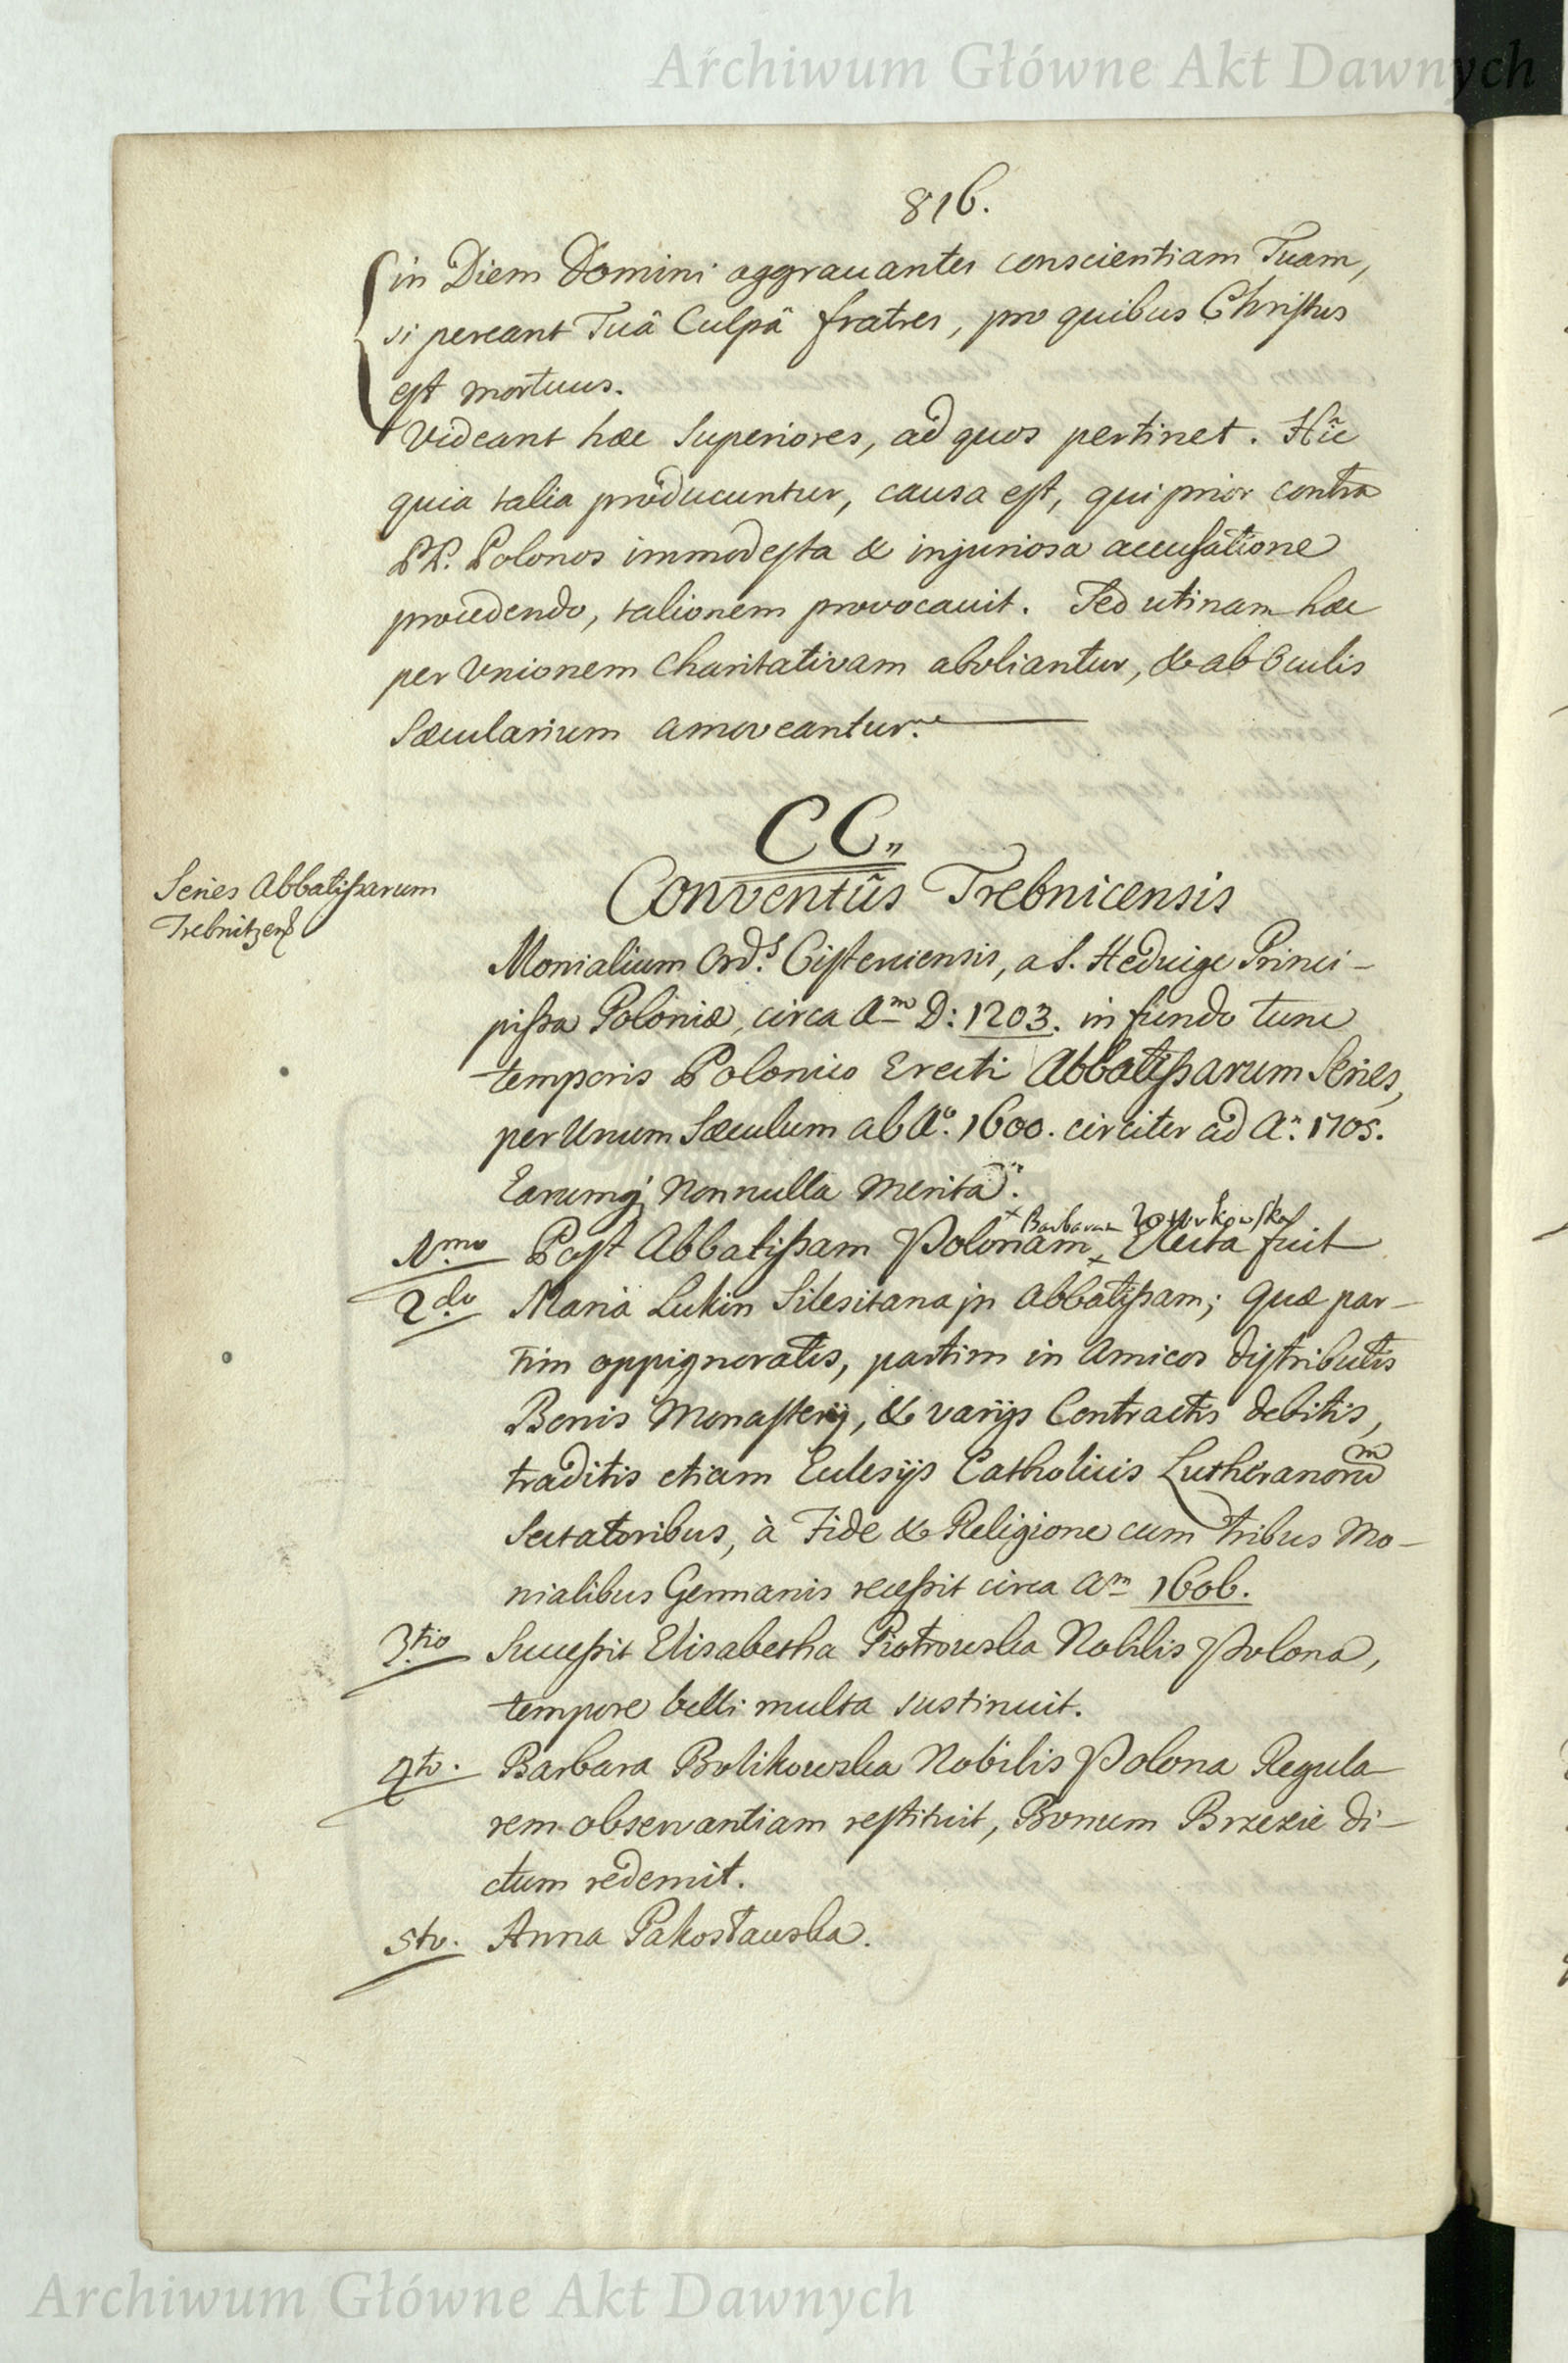 Archiwum Główne Akt Dawnych
816.
in Diem Domini aggrauantes conscientiam Tuam,
si pereant Tuâ Culpâ fratres, pro quibus Christus
est mortuus.
Videant hæc Superiores, ad quos pertinet. Hîc
quia talia producuntur, causa est, qui prior contra
PP. Polonos immodesta & injuriosa accusatione
procedendo, talionem provocauit. Sed utinam hæc
per Unionem Charitativam aboliantur, & ab Oculis
Sæcularium amoveantur.
CC„
Series Abbatissarum
Trebnitzens
Conventûs Trebnicensis
Monialium Ord.s Cisterciensis, a S. Heduige Princi-
pissa Poloniæ, circa Am D: 1203. in fundo tunc
temporis Polonico Erecti Abbatissarum Series,
per Unum Sæculum ab Ao. 1600. circiter ad An. 1705.
Earumq; Nonnulla Merita.
1.mo Post Abbatissam Polonam x Barbaram x Electa fuit
2.do Maria Lukin Silesitana in Abbatissam; Quæ par-
tim oppignoratis, partim in Amicos distributis
Bonis Monasterij, & varijs Contractis debitis,
traditis etiam Ecclesijs Catholicis Lutheranorum
Sectatoribus, à Fide & Religione cum tribus Mo-
nialibus Germanis recessit circa Am 1606.
3.tio Successit Elisabetha Piotrowska Nobilis Polona,
tempore belli multa sustinuit.
4to. Barbara Bolikowska Nobilis Polona Regula-
rem observantiam restituit, Bonum Brzezie di-
ctum redemit.
5to. Anna Pakosławska.
Archiwum Główne Akt Dawnych